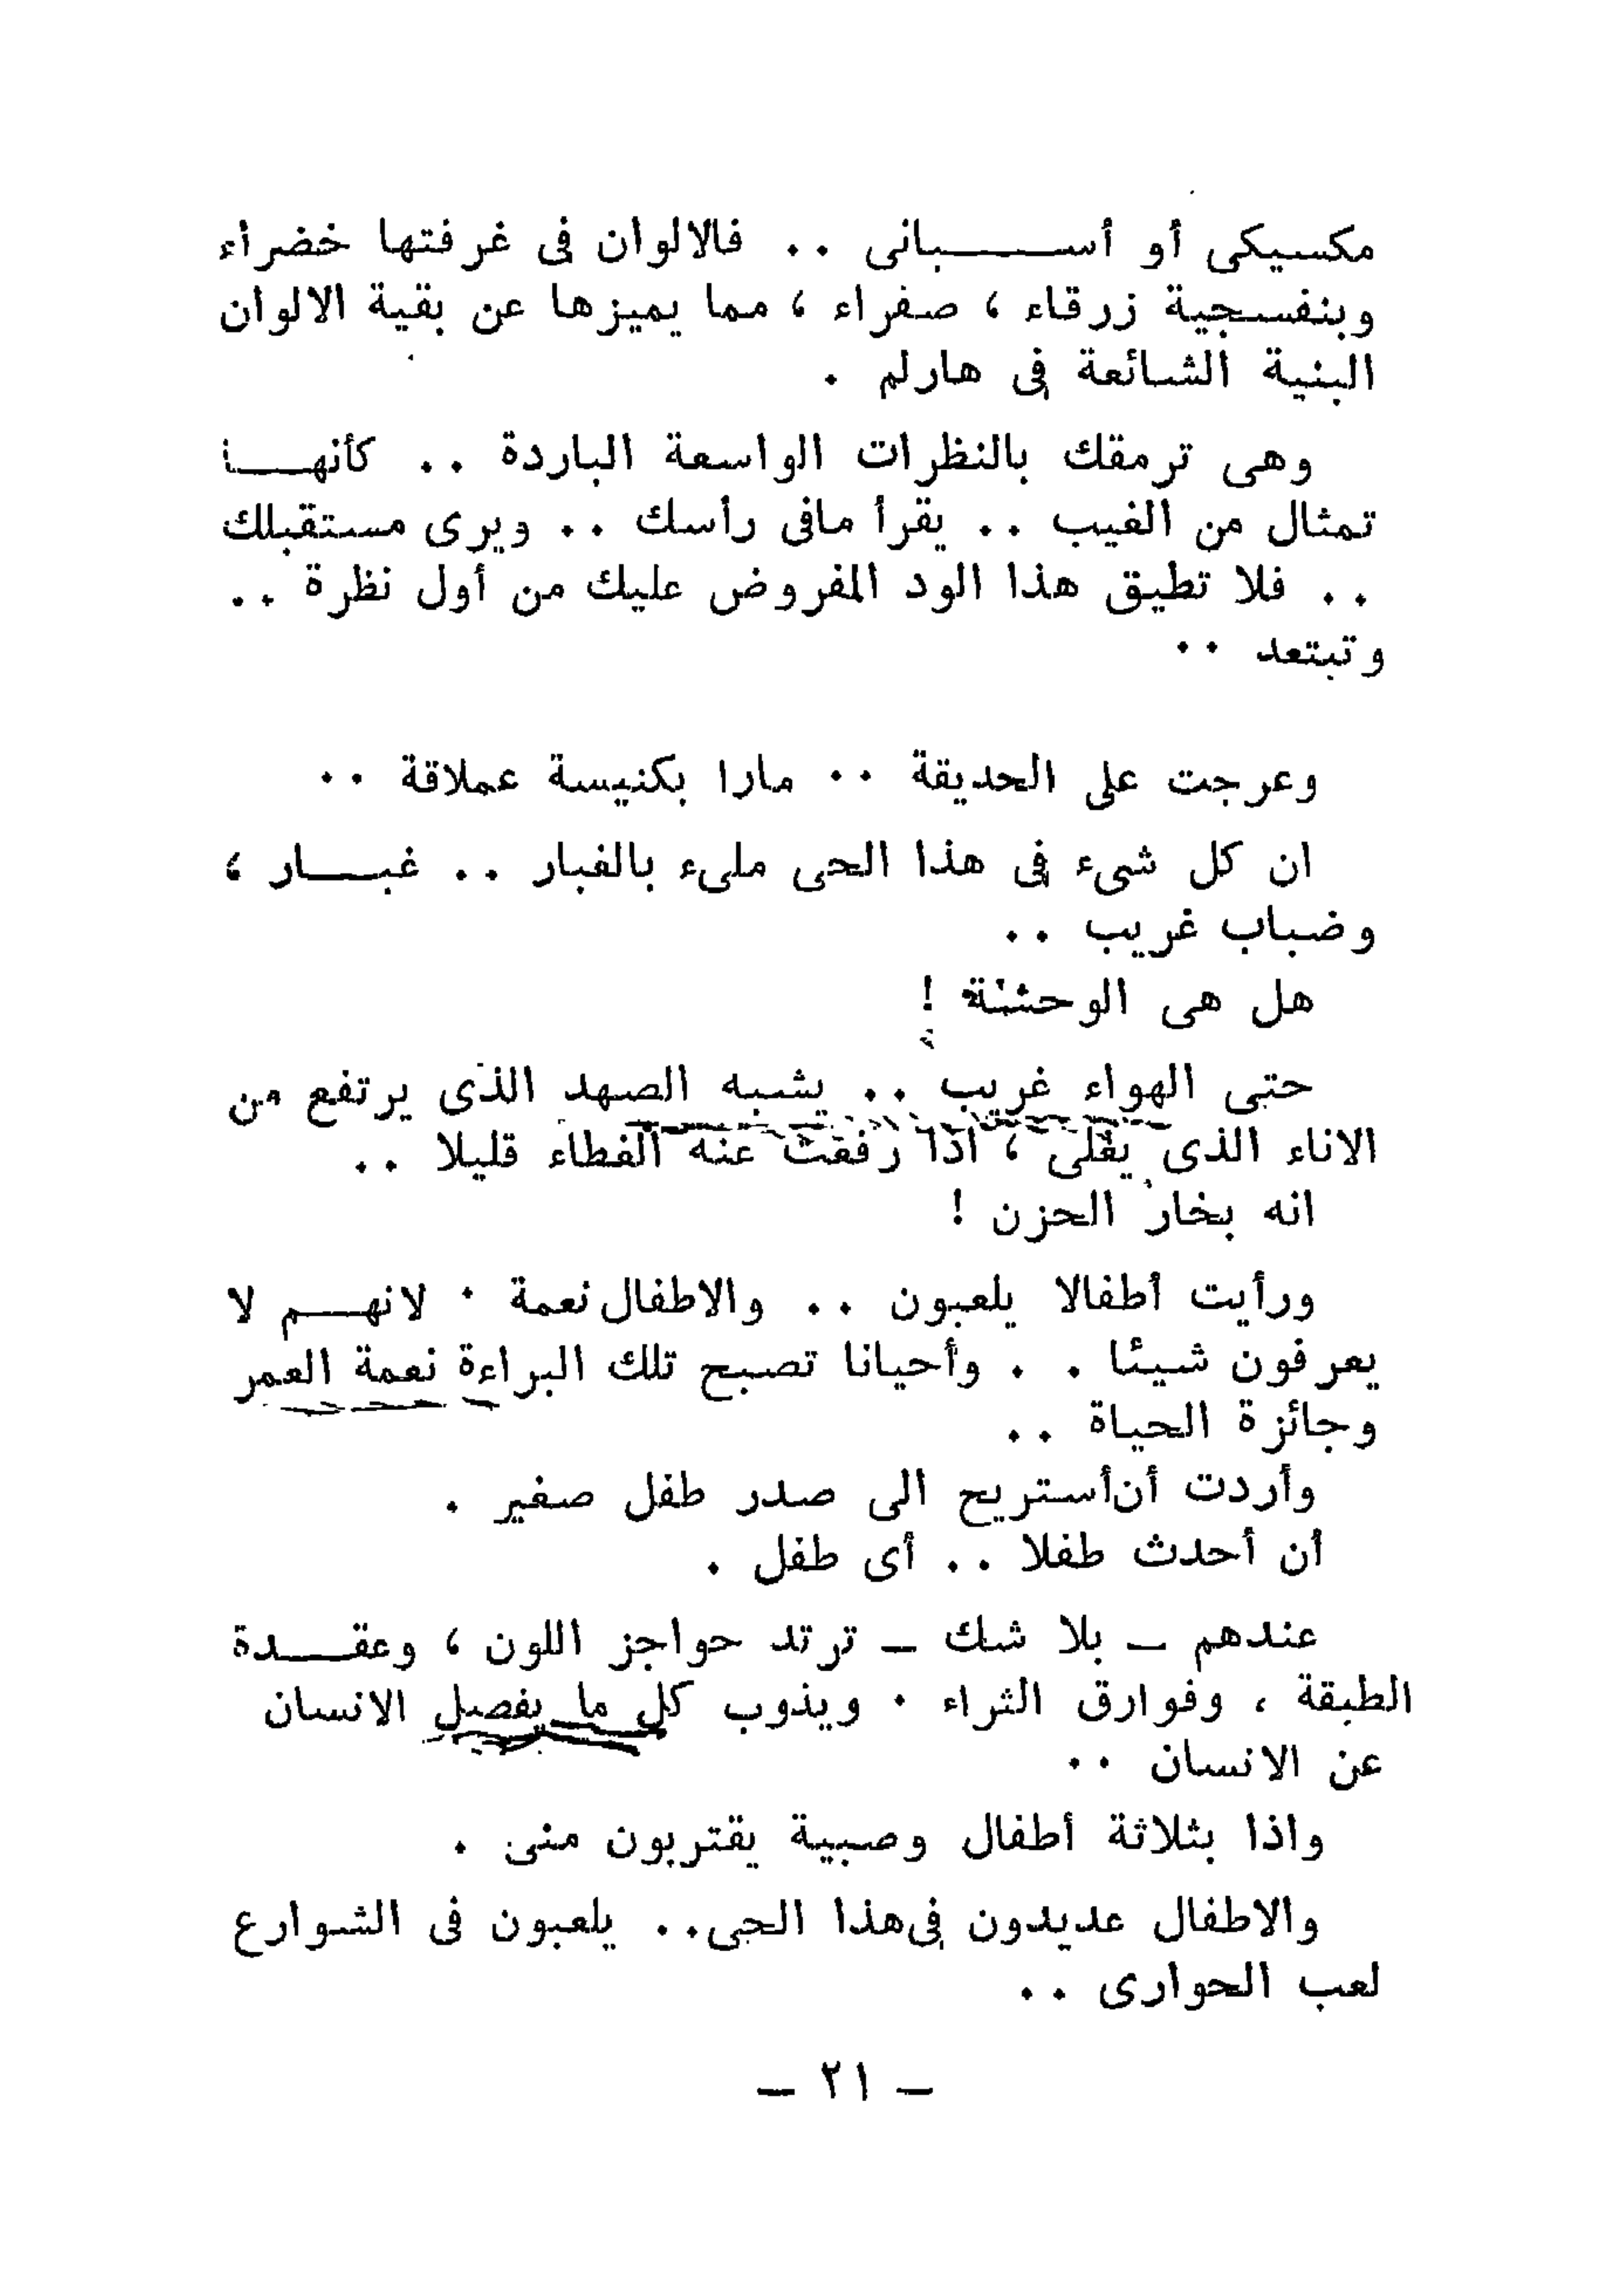 مكسيكى أو أسبانى .. فالالوان فى غرفتها خضراء
وبنفسجية زرقاء ، صفراء ، مما يميزها عن بقية الالوان
البنية الشائعة فى هارلم .
وهى ترمقك بالنظرات الواسعة الباردة .. كأنها
تمثال من الغيب .. يقرأ مافى رأسك .. ويرى مستقبلك
.. فلا تطيق هذا الود المفروض عليك من أول نظرة ..
وتبتعد ..
وعرجت على الحديقة .. مارا بكنيسة عملاقة ..
ان كل شىء فى هذا الحى ملىء بالغبار .. غبار ،
وضباب غريب ..
هل هى الوحشة !
حتى الهواء غريب .. يشبه الصهد الذى يرتفع من
الاناء الذى يغلى ، اذا رفعت عنه الغطاء قليلا ..
انه بخار الحزن !
ورأيت أطفالا يلعبون .. والاطفال نعمة . لانهم لا
يعرفون شيئا .. وأحيانا تصبح تلك البراءة نعمة العمر
وجائزة الحياة ..
وأردت أن أستريح الى صدر طفل صغير .
أن أحدث طفلا .. أى طفل .
عندهم — بلا شك — ترتد حواجز اللون ، وعقدة
الطبقة ، وفوارق الثراء . ويذوب كل ما يفصل الانسان
عن الانسان ..
واذا بثلاثة أطفال وصبية يقتربون منى .
والاطفال عديدون فى هذا الحى .. يلعبون فى الشوارع
لعب الحوارى ..
— ٢١ —